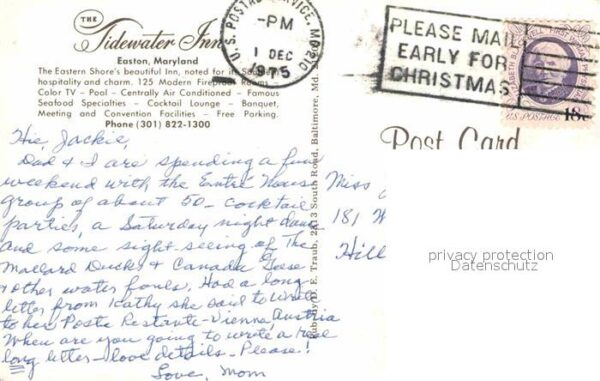 THE
Tidewater Inn
Easton, Maryland
The Eastern Shore's beautiful Inn, noted for its Southern
hospitality and charm. 125 Modern Fireproof Rooms -
Color TV – Pool – Centrally Air Conditioned – Famous
Seafood Specialties – Cocktail Lounge – Banquet,
Meeting and Convention Facilities – Free Parking.
Phone (301) 822-1300
U. S. POSTAL SERVICE, MD 210
-PM
1 DEC
1975
PLEASE MAIL
EARLY FOR
CHRISTMAS
FIRST
18c
US POSTAGE
Post Card
Hi, Jackie,
Dad & I are spending a fun
weekend with the Entre Nous
group of about 50 – cocktail
parties, a Saturday night dance
and some sight-seeing of The
Mallard Ducks & Canada Geese
& other water fowls. Had a long
letter from Kathy she said to write
to her Poste Restante – Vienna, Austria
When are you going to write a real
long letter – love details – Please!!
Love, Mom
Pub. by D. E. Traub, 2813 South Road, Baltimore, Md.
Miss
181
Hill
privacy protection
Datenschutz